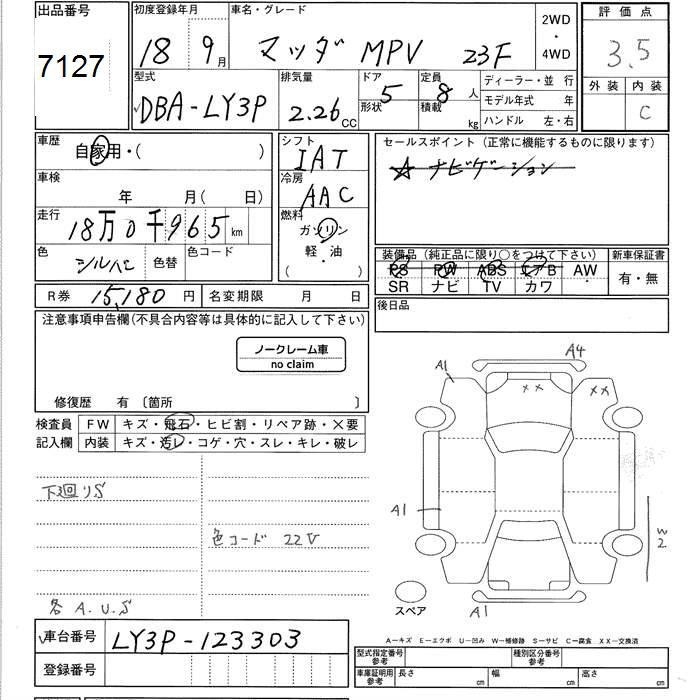 出品番号
7127
初度登録年月
18 9月
車名・グレード
マツダ MPV 23F
2WD
・
4WD
評価点
3.5
外装 内装
C
型式
DBA-LY3P
排気量
2.26cc
ドア 5
形状
定員 8人
積載 kg
ディーラー・並行
モデル年式 年
ハンドル 左・右
車歴
自家用・( )
車検
年 月( 日)
走行
18万0千965km
色
シルバー
色替
色コード
シフト
IAT
冷房
AAC
燃料
ガソリン
軽・油
( )
セールスポイント(正常に機能するものに限ります)
☆ ナビゲーション
装備品(純正品に限り○をつけて下さい)
PS PW ABS エアB AW
SR ナビ TV カワ
新車保証書
有・無
R券 15,180円
名変期限 月 日
後日品
注意事項申告欄(不具合内容等は具体的に記入して下さい)
ノークレーム車
no claim
修復歴 有 〔箇所 〕
検査員
記入欄
FW キズ・飛石・ヒビ割・リペア跡・×要
内装 キズ・汚レ・コゲ・穴・スレ・キレ・破レ
下廻りS
色コード 22V
各A.U.S
A4
A1
XX
XX
A1
W2
A1
スペア
A―キズ E―エクボ U―凹み W―補修跡 S―サビ C―腐食 XX―交換済
車台番号 LY3P-123303
登録番号
型式指定番号
参考
種別区分番号
参考
車庫証明用
参考
長さ cm
幅 cm
高さ cm